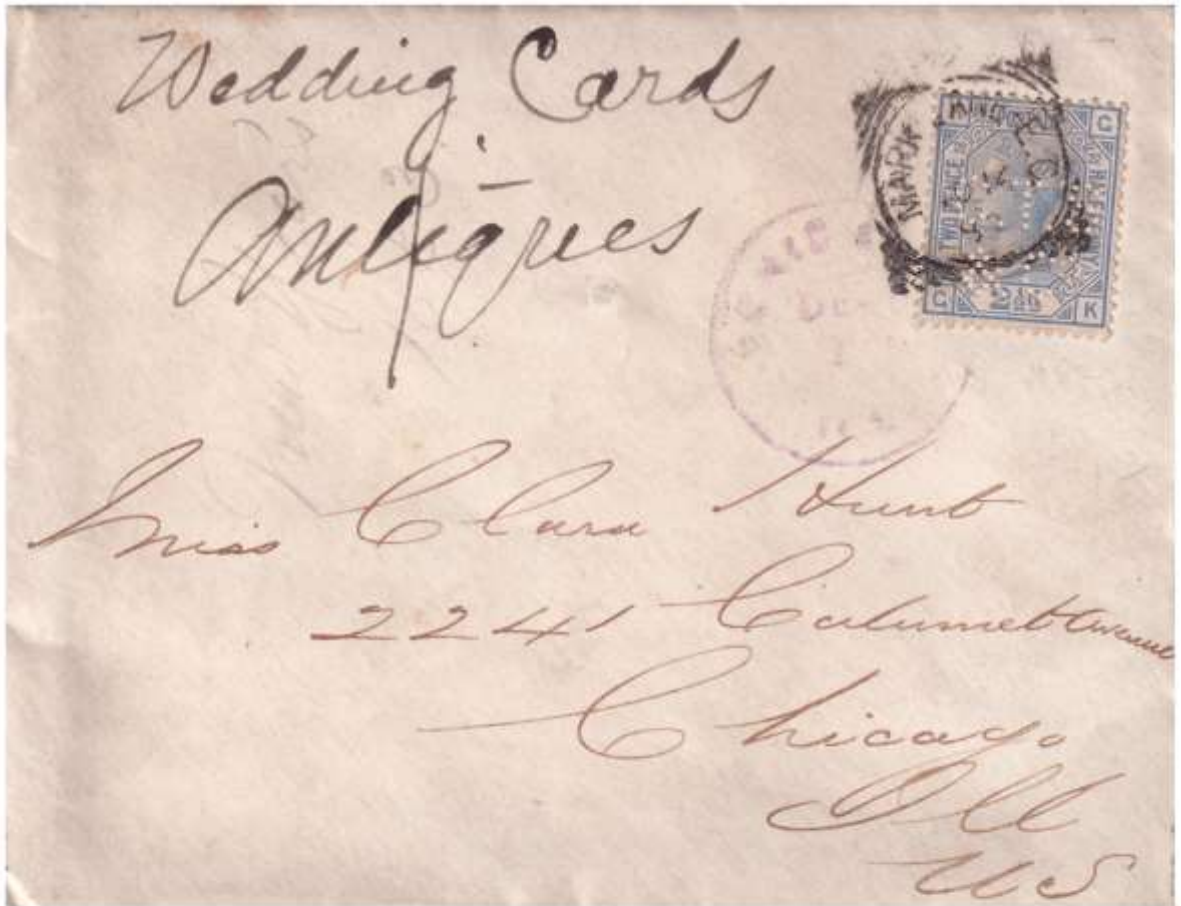 Wedding Cards
Antiques
MARK LANE E.C
K
G
TWO PENCE
HALFPENNY
G
2½
K
PAID
Miss Clara Hunt
2241 Calumet Avenue
Chicago
Ill
US